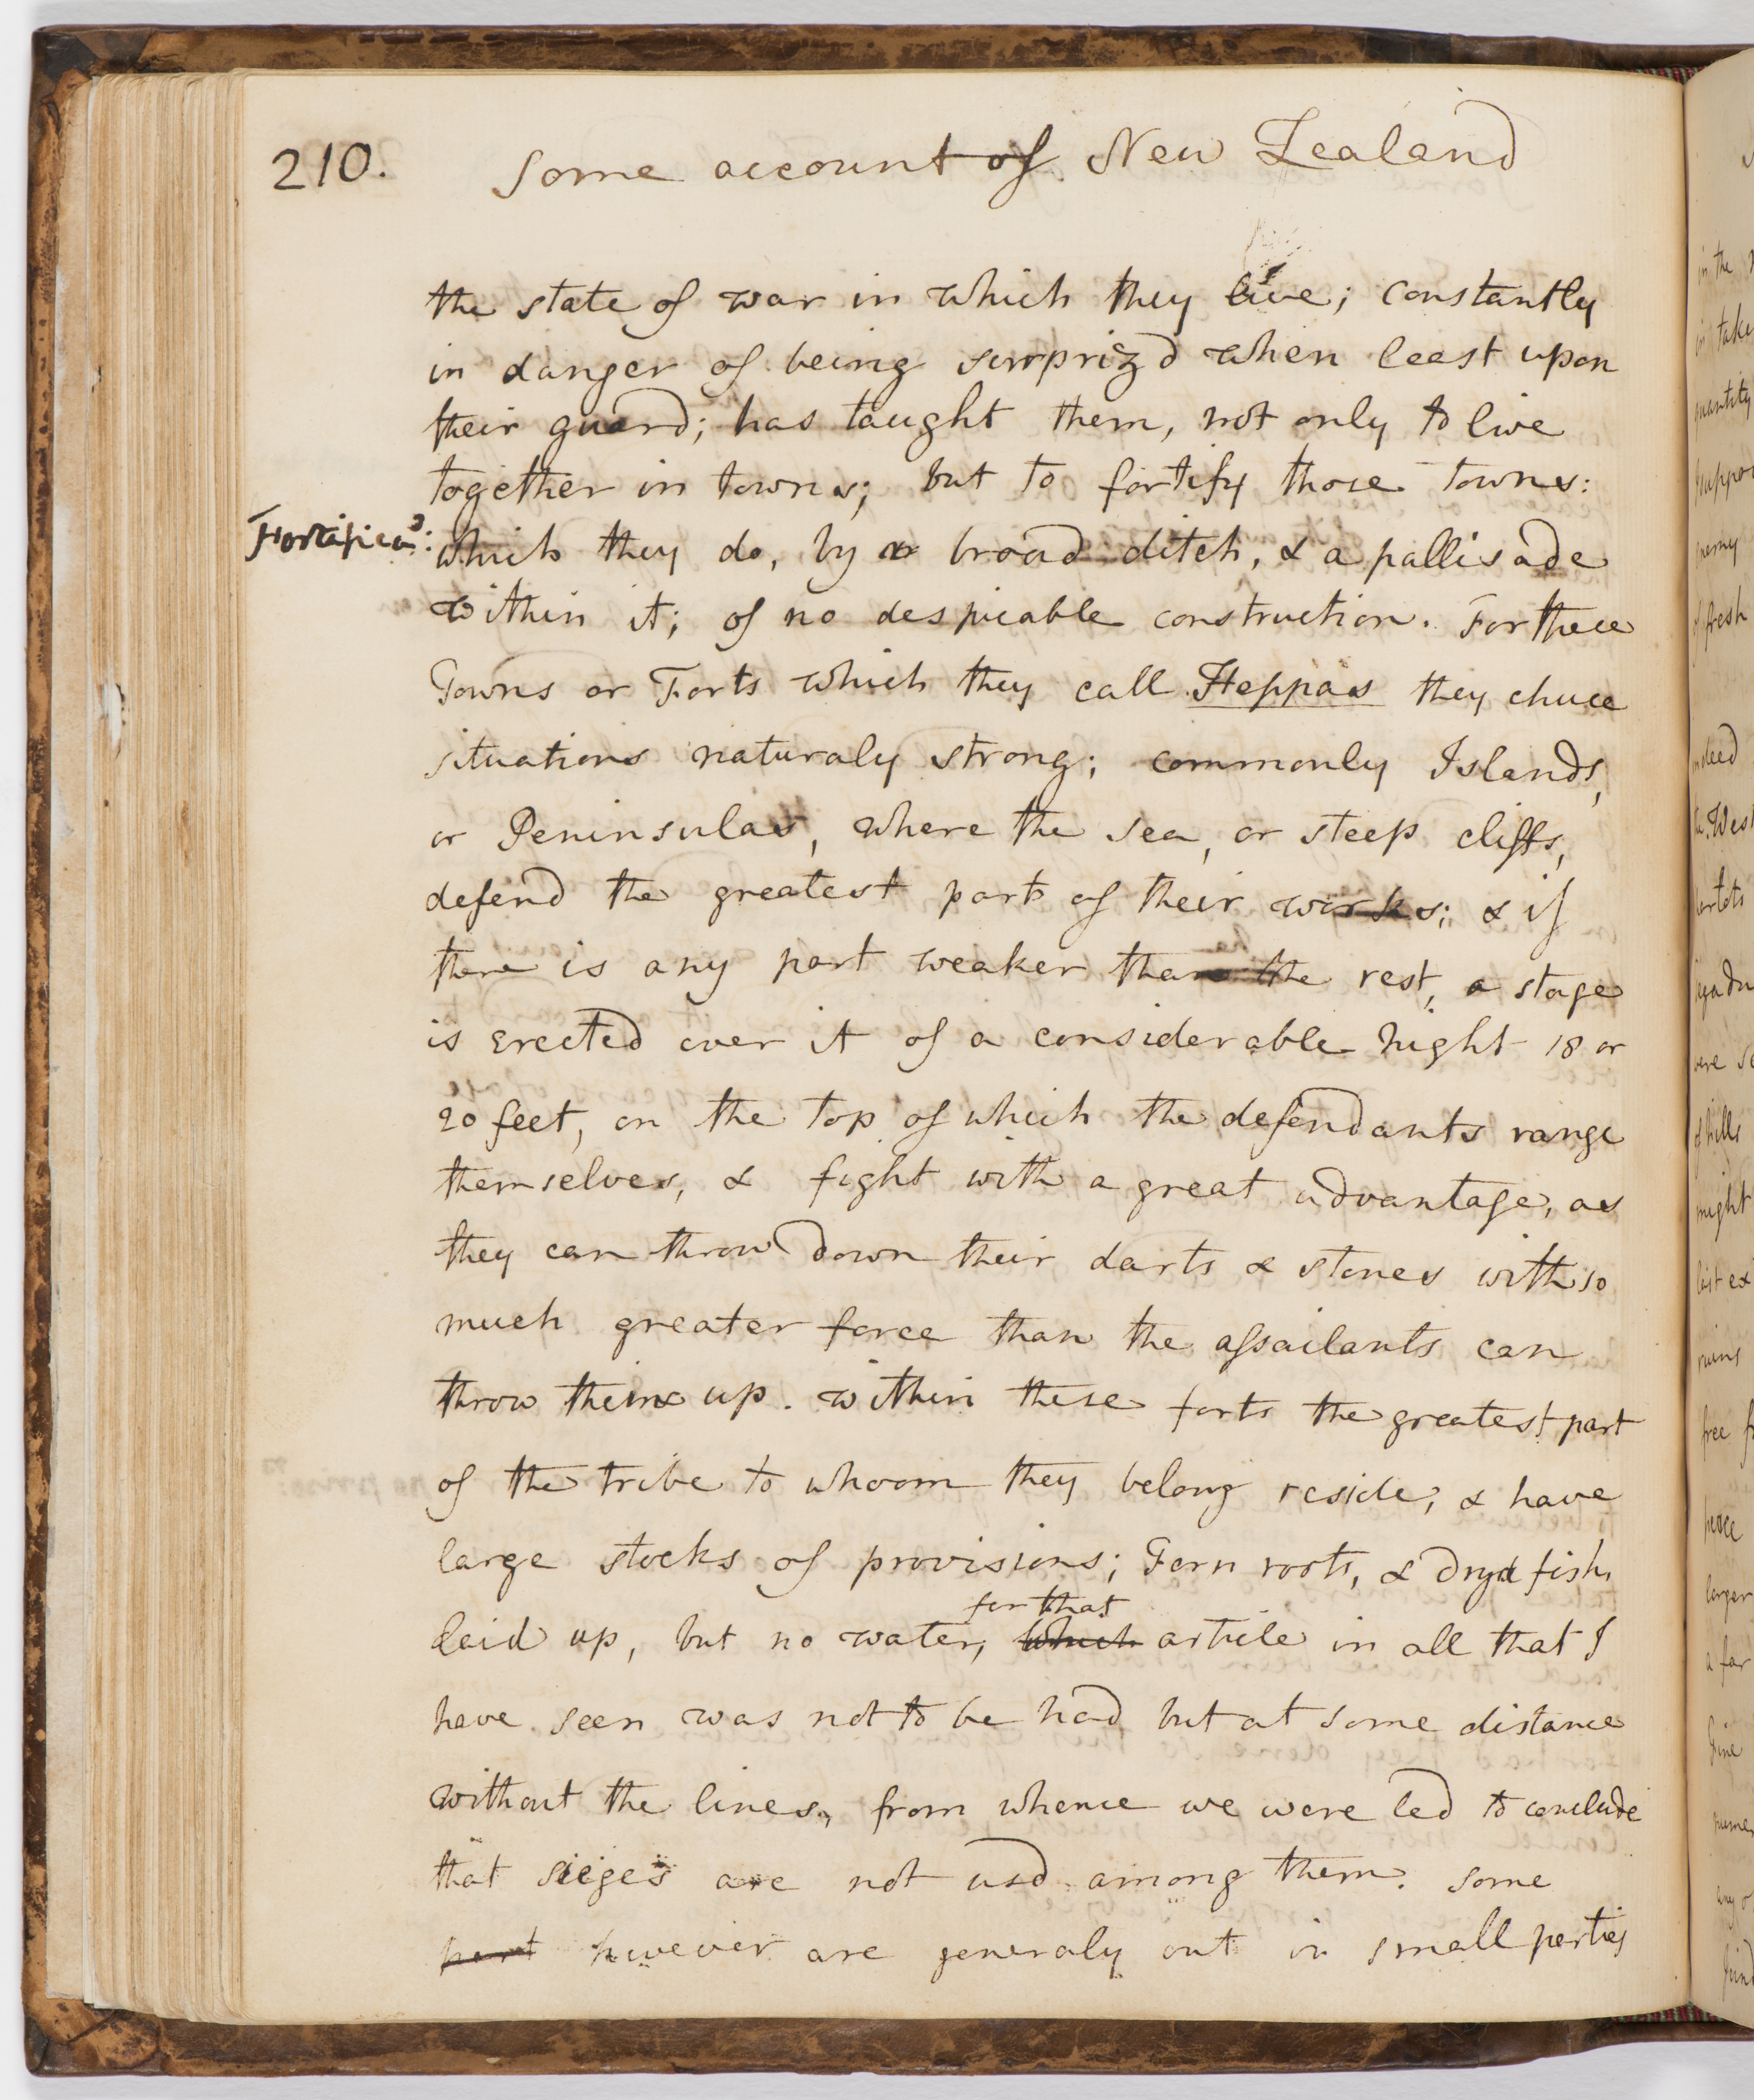 210.
Some account of New Zealand
the state of war in which they live; constantly
in danger of being surpriz'd when least upon
their guard; has taught them, not only to live
together in towns; but to fortify those towns:
Fortifican:
which they do, by a broad ditch, & a pallisade
within it; of no despicable construction. For these
Towns or Forts which they call Heppas they chuse
situations naturaly strong; commonly Islands,
or Peninsulas, where the sea, or steep cliffs,
defend the greatest part of their works; & if
there is any part weaker than the rest, a stage
is erected over it of a considerable hight 18 or
20 feet, on the top of which the defendants range
themselves, & fight with a great advantage, as
they can throw down their darts & stones with so
much greater force than the assailants can
throw them up. within these forts the greatest part
of the tribe to whoom they belong reside, & have
large stocks of provisions; Fern roots, & dryd fish,
for that
laid up, but no water, which article in all that I
have seen was not to be had but at some distance
without the lines, from whence we were led to conclude
that sieges are not usd among them. some
part however are generaly out in small parties